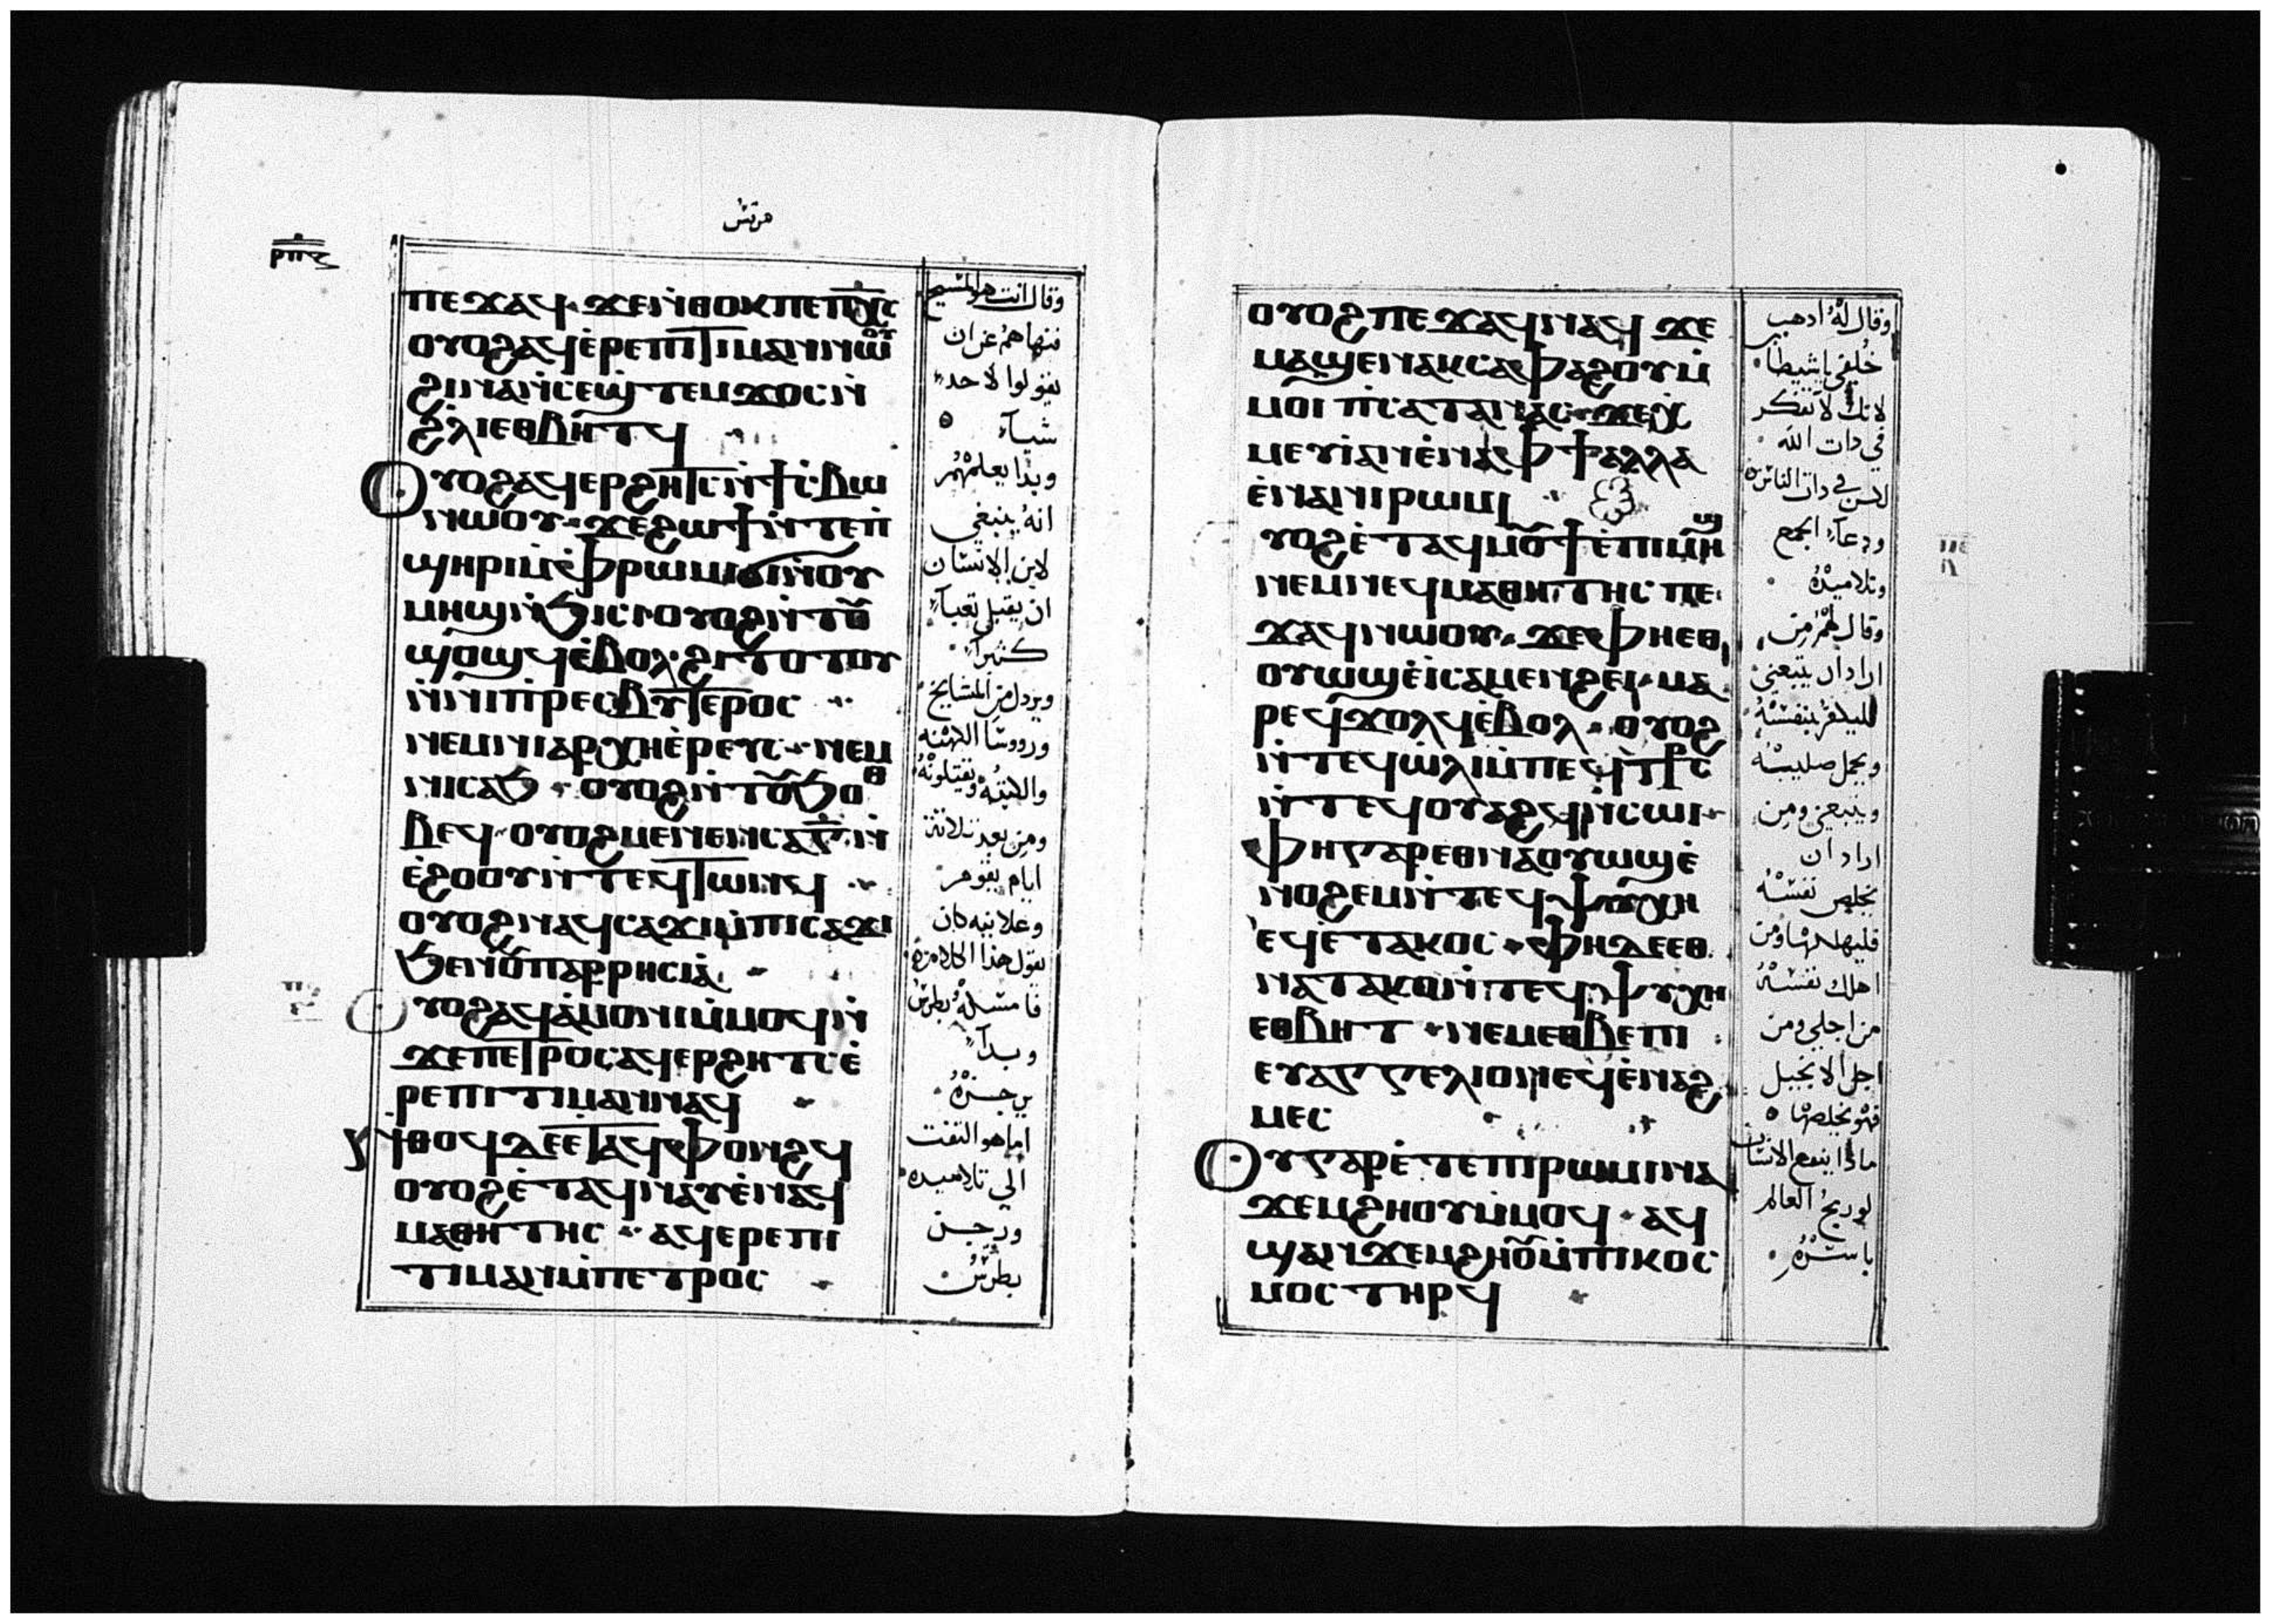 مرقس
ⲡⲉϫⲁϥ ϫⲉⲛ̇ⲑⲟⲕ ⲡⲉ ⲡⲭ̅ⲥ̅
ⲟⲩⲟϩ ⲁϥⲉ̇ⲣⲉⲡⲓⲧⲓⲙⲁⲛ ⲛⲱⲟⲩ
ϩⲓⲛⲁ ⲛ̇ⲥⲉϣ̇ⲧⲉⲙϫⲟⲥ ⲛ̇
ϩⲗⲓ ⲉⲑⲃⲏⲧϥ
ⲟⲩⲟϩ ⲁϥⲉⲣϩⲏⲧⲥ ⲛ̇ϯⲥⲃⲱ
ⲛⲱⲟⲩ ϫⲉ ϩⲱϯ ⲛ̇ⲧⲉ ⲡ̇
ϣⲏⲣⲓ ⲙ̇ⲫⲣⲱⲙⲓ ϭⲓ ⲛ̇ⲟⲩ
ⲙⲏϣ ⲛ̇ϧⲓⲥⲓ ⲟⲩⲟϩ ⲛ̇ⲧⲟⲩ
ϣⲟϣϥ ⲉ̇ⲃⲟⲗ ϩⲓⲧⲟⲧⲟⲩ
ⲛ̇ⲛⲓⲡ̇ⲣⲉⲥⲃⲩⲧⲉⲣⲟⲥ
ⲛⲉⲙ ⲛⲓⲁⲣⲭⲏⲉ̇ⲣⲉⲩⲥ ⲛⲉⲙ
ⲛⲓⲥⲁϧ ⲟⲩⲟϩ ⲛ̇ⲧⲟⲩϧⲟⲑ
ⲃⲉϥ ⲟⲩⲟϩ ⲙⲉⲛⲉⲛⲥⲁ ⲅ̅ ⲛ̇
ⲉ̇ϩⲟⲟⲩ ⲛ̇ⲧⲉϥⲧⲱⲛϥ
ⲟⲩⲟϩ ⲛⲁϥⲥⲁϫⲓ ⲙ̇ⲡⲓⲥⲁϫⲓ
ϧⲉⲛ ⲟⲩⲡⲁⲣⲣⲏⲥⲓⲁ̇
ⲟⲩⲟϩ ⲁϥⲁ̇ⲙⲟⲛⲓ ⲙ̇ⲙⲟϥ ⲛ̇
ϫⲉ ⲡⲉⲧⲣⲟⲥ ⲁϥⲉⲣϩⲏⲧⲥ ⲉ̇
ⲣⲉⲡⲓⲧⲓⲙⲁⲛ ⲛⲁϥ
ⲛ̇ⲑⲟϥ ⲇⲉ ⲉⲧⲁϥⲫⲟⲛϩϥ
ⲟⲩⲟϩ ⲉ̇ⲧⲁϥⲛⲁⲩ ⲉ̇ⲛⲉϥ
ⲙⲁⲑⲏⲧⲏⲥ ⲁϥⲉⲣⲉⲡⲓ
ⲧⲓⲙⲁⲛ ⲙ̇ⲡⲉⲧⲣⲟⲥ
وقال انت هو المسيح
فنهاهم عن ان
يقولوا لاحد
شيآء
وبدا يعلمهم
انه ينبغي
لابن الانسان
ان يقبل تعبا
كثيرا
ويرذل من المشايخ
ورووسا الكهنه
والكتبه ويقتلونه
ومن بعد ثلاثة
ايام يقوم
وعلانيه كان
يقول هذا الكلام
فامسكه بطرس
وبدا
يزجره
اما هو التفت
الي تلاميده
وزجر
بطرس
ⲟⲩⲟϩ ⲡⲉϫⲁϥ ⲛⲁϥ ϫⲉ
ⲙⲁϣⲉⲛⲁⲕ ⲥⲁⲫⲁϩⲟⲩ ⲙ̇
ⲙⲟⲓ ⲡⲥⲁⲧⲁⲛⲁⲥ ϫⲉ ⲭ̇
ⲙⲉⲩⲓ̇ ⲁⲛ ⲉ̇ⲛⲁ ⲫϯ ⲁⲗⲗⲁ
ⲉ̇ⲛⲁ ⲛⲓⲣⲱⲙⲓ
ⲟⲩⲟϩ ⲉ̇ⲧⲁϥⲙⲟⲩϯ ⲉ̇ⲡⲓⲙⲏϣ
ⲛⲉⲙ ⲛⲉϥⲙⲁⲑⲏⲧⲏⲥ ⲡⲉ
ϫⲁϥ ⲛⲱⲟⲩ ϫⲉ ⲫⲏⲉⲑ
ⲟⲩⲱϣ ⲉ̇ⲓ̇ ⲥⲁⲙⲉⲛϩⲏⲓ ⲙⲁ
ⲣⲉϥϫⲟⲗϥ ⲉ̇ⲃⲟⲗ ⲟⲩⲟϩ
ⲛ̇ⲧⲉϥⲱ̇ⲗⲓ ⲙ̇ⲡⲉϥⲥ̇ⲧ̅ⲣ̅ⲥ̅
ⲛ̇ⲧⲉϥⲟⲩⲁϩϥ ⲛ̇ⲥⲱⲓ
ⲫⲏ ⲅⲁⲣ ⲉⲑⲛⲁⲟⲩⲱϣ ⲉ̇
ⲛⲟϩⲉⲙ ⲛ̇ⲧⲉϥⲯⲩⲭⲏ
ⲉϥⲉ̇ⲧⲁⲕⲟⲥ ⲫⲏ ⲇⲉ ⲉⲑ
ⲛⲁⲧⲁⲕⲟ ⲛ̇ⲧⲉϥⲯⲩⲭⲏ
ⲉⲑⲃⲏⲧ ⲛⲉⲙ ⲉⲑⲃⲉ ⲡⲓ
ⲉⲩⲁⲅⲅⲉⲗⲓⲟⲛ ⲉϥⲉ̇ⲛⲁϩ
ⲙⲉⲥ
ⲟⲩ ⲅⲁⲣ ⲉ̇ⲧⲉ ⲡⲓⲣⲱⲙⲓ ⲛⲁ
ϫⲉⲙϩⲏⲟⲩ ⲙ̇ⲙⲟϥ ⲁϥ
ϣⲁⲛϫⲉⲙϩⲏⲟⲩ ⲙ̇ⲡⲓⲕⲟⲥ
ⲙⲟⲥ ⲧⲏⲣϥ
وقال له ادهب
خلفي يا شيطان
لانك لا تفكر
في دات الله
لكن في دات الناس
ودعآء الجمع
وتلاميده
وقال لهم من
اراد ان يتبعني
فليكفر بنفسه
ويحمل صليبه
ويتبعني ومن
اراد ان
يخلص نفسه
فليهلكها ومن
اهلك نفسه
من اجلي ومن
اجل الانجيل
فهو يخلصها
مادا ينفع الانسان
لو ربح العالم
باسره